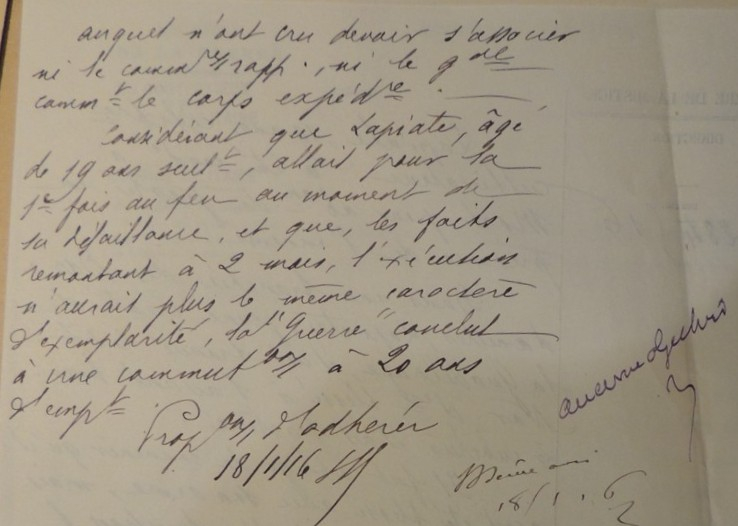 auquel n'ont cru devoir s'associer
ni le comm re/ rapp., ni le gal
commt le corps expédre.
Considérant que Lapiate, âgé
de 19 ans seult, allait pour la
1e fois au feu au moment de
sa défaillance, et que, les faits
remontant à 2 mois, l'exécution
n'aurait plus le même caractère
d'exemplarité, la "Guerre" conclut
à une commut on/ à 20 ans
d'empt.
Prop on/ d'adhérer
18/1/16
Même avis
18/1.16